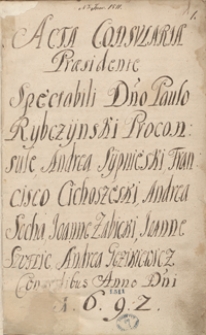 1.
ACTA CONSULARIA
Præsidente
Spectabili Dño Paulo
Rybczynski Procon:
sule, Andrea Sypnieski Fran:
cisco Cichoszeski, Andrea
Socha, Joanne Załuski, Joanne
Andrea
Consulibus Anno Dni
1.6.9.2.